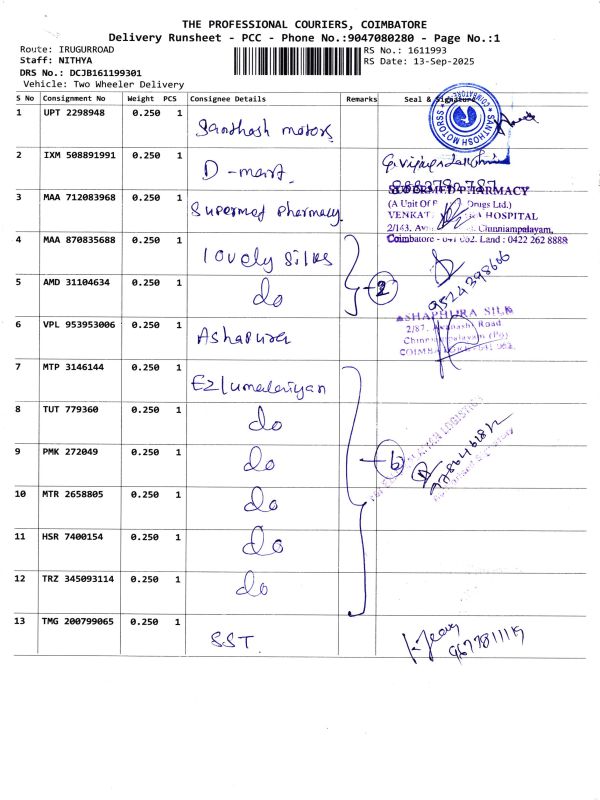 THE PROFESSIONAL COURIERS, COIMBATORE
Delivery Runsheet - PCC - Phone No.:9047080280 - Page No.:1
Route: IRUGURROAD
RS No.: 1611993
Staff: NITHYA
RS Date: 13-Sep-2025
DRS No.: DCJB161199301
Vehicle: Two Wheeler Delivery
S No Consignment No Weight PCS Consignee Details Remarks Seal & Signature
1 UPT 2298948 0.250 1 Santhosh motors
SANTHOSH MOTORSS
COIMBATORE
2 IXM 508891991 0.250 1 D-mart
3 MAA 712083968 0.250 1 Supermed Pharmacy
SUPERMED PHARMACY
(A Unit Of Drugs Ltd.)
VENKAT HOSPITAL
2/143, Chinniampalayam,
Coimbatore - 641 062. Land : 0422 262 8888
4 MAA 870835688 0.250 1 lovely silks
5 AMD 31104634 0.250 1 do
2
9524398606
6 VPL 953953006 0.250 1 Ashapura
ASHAPURA SILK
2/87, Avanashi Road
Chinniampalayam (Po)
COIMBATORE - 641 062.
7 MTP 3146144 0.250 1 Ezlumalaiyan
8 TUT 779360 0.250 1 do
9 PMK 272049 0.250 1 do
6
10 MTR 2658805 0.250 1 do
11 HSR 7400154 0.250 1 do
12 TRZ 345093114 0.250 1 do
13 TMG 200799065 0.250 1 SST.
9677811119